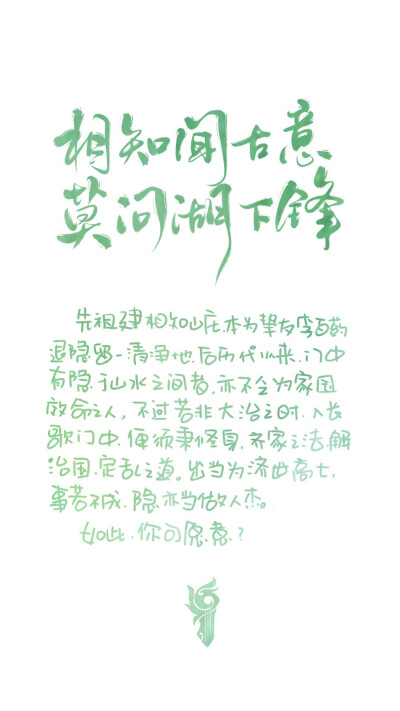 相知闻古意
莫问湖下锋
先祖建相知山庄.本为挚友李白的
退隐留一清净地.后历代以来.门中
有隐于山水之间者,亦不乏为家国
效命之人,不过若非大治之时.入长
歌门中.便须秉修身.齐家之法.解
治国.定乱之道。出当为济世高士,
事若不成.隐亦当做人杰。
如此.你可愿意.?